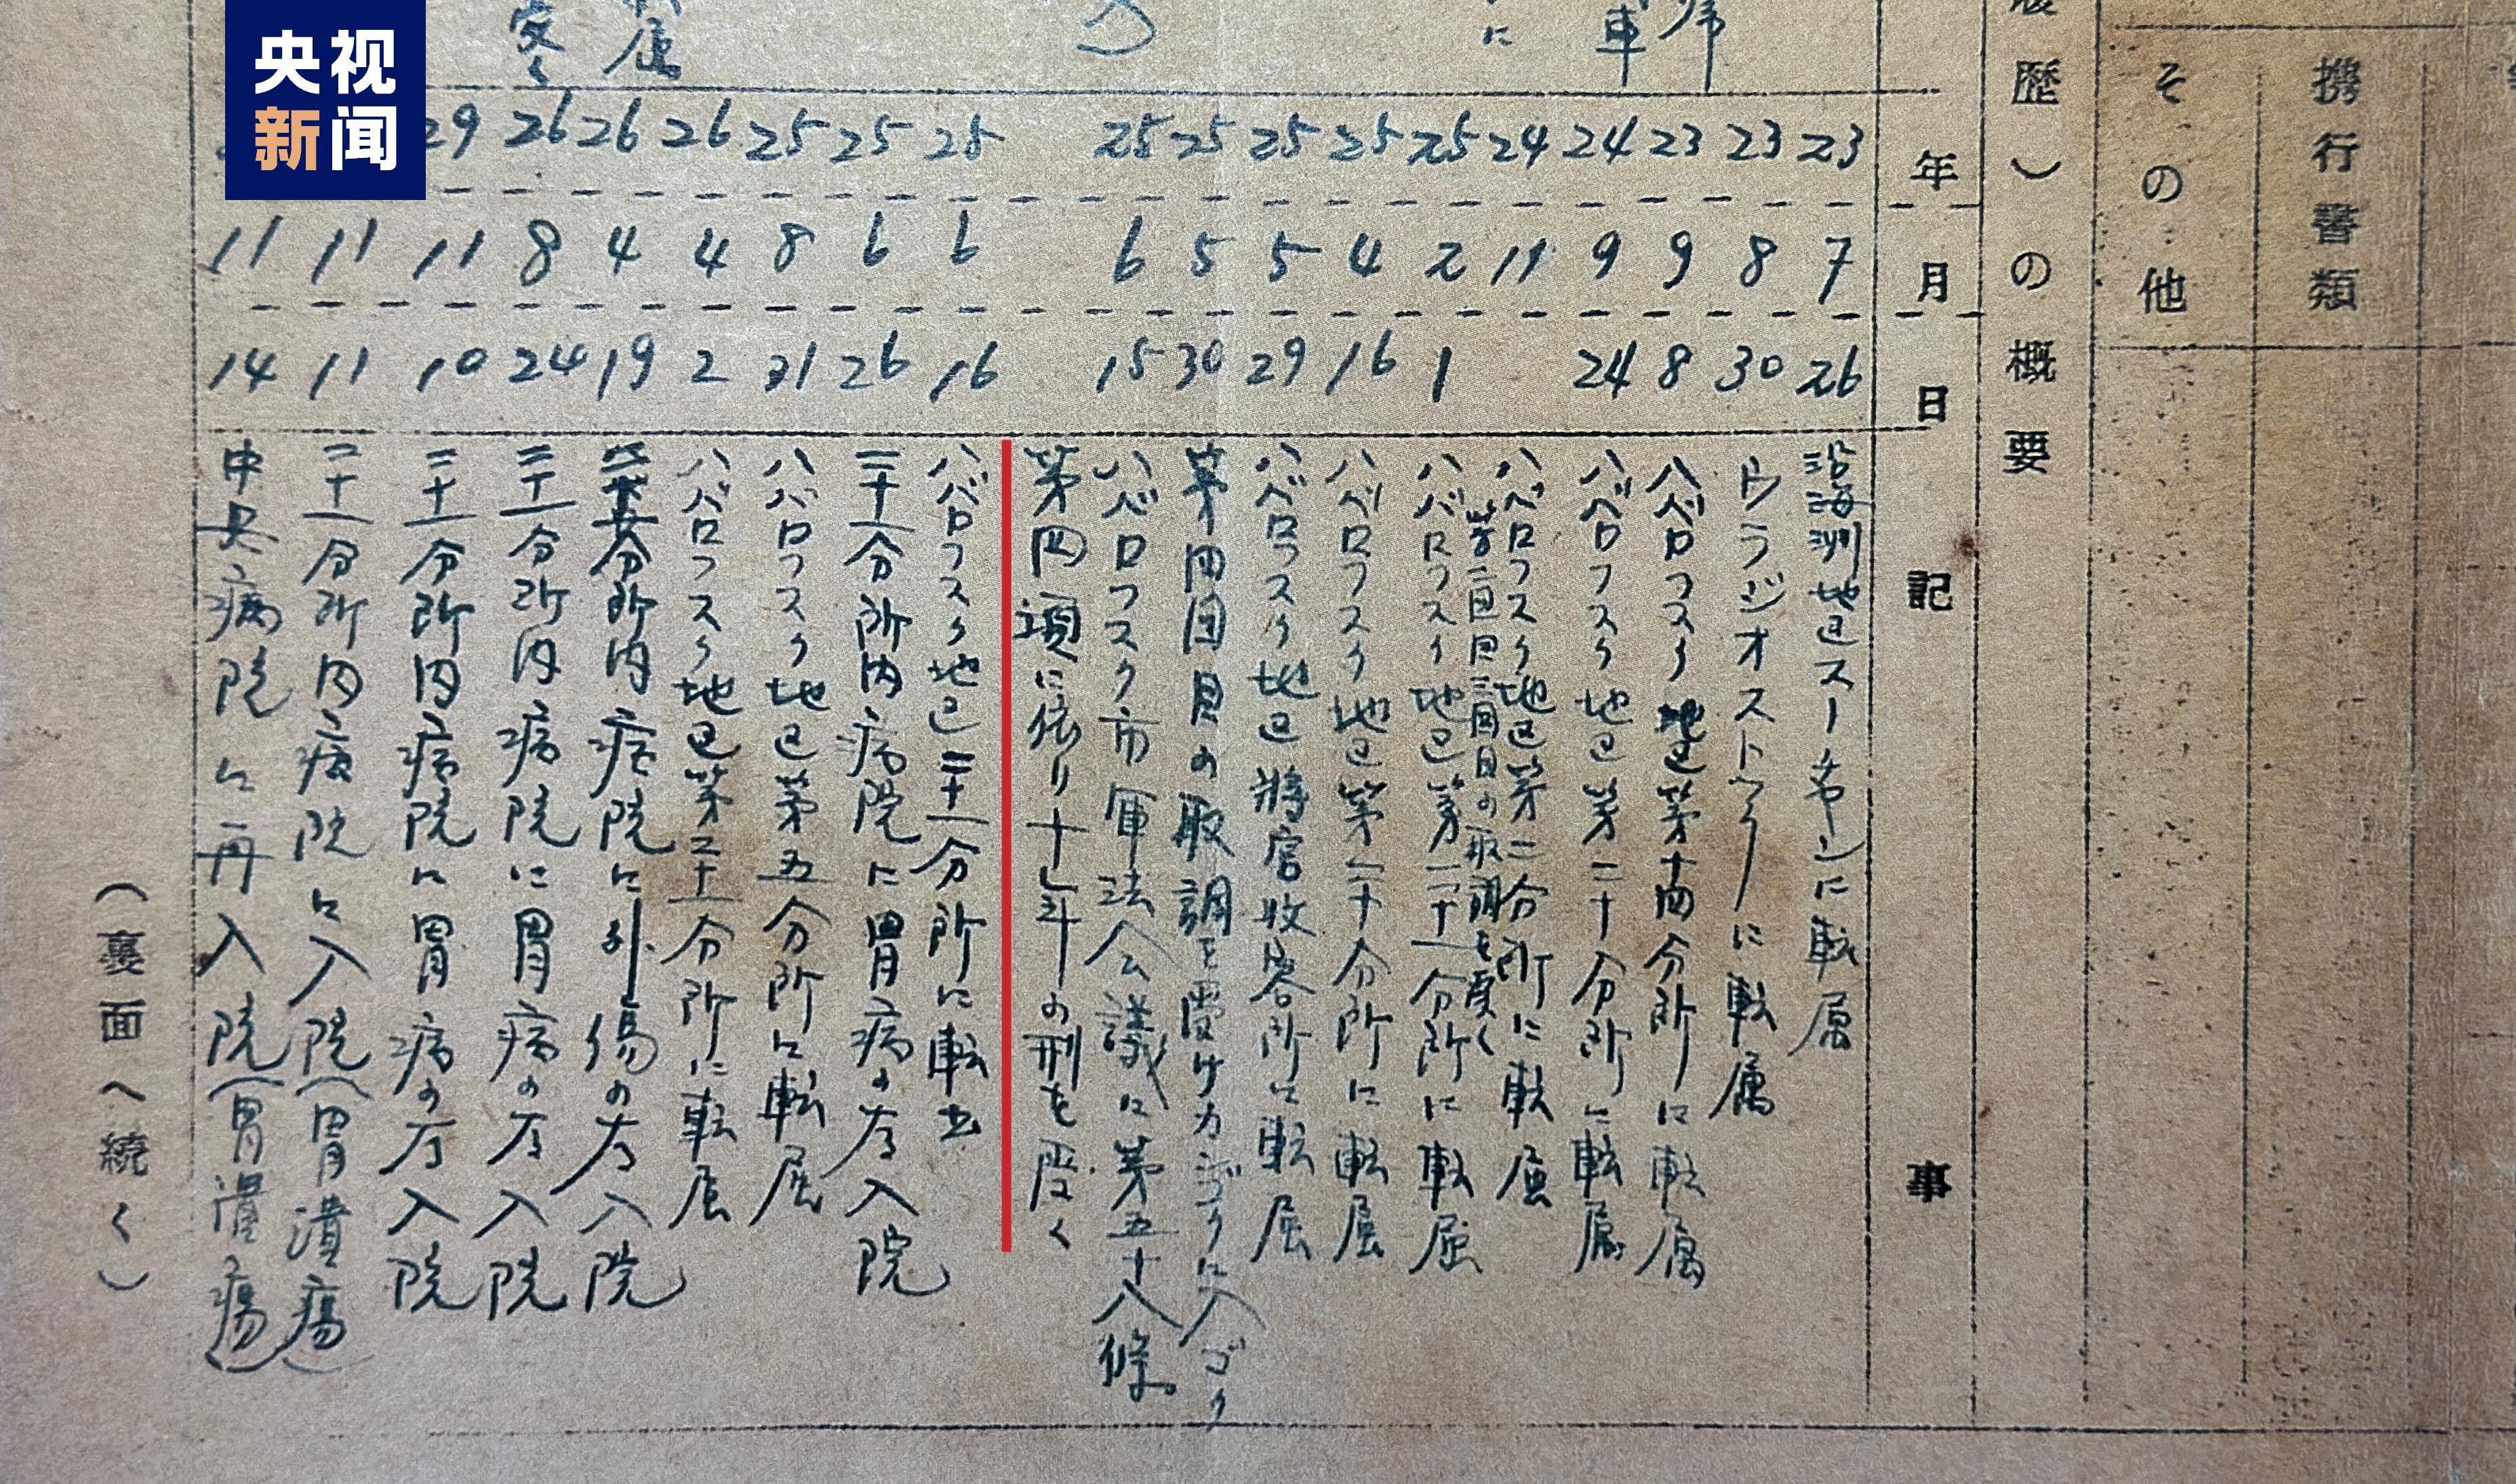 央视
新闻
携行書類
その他
歴)の概要
年
月
日
記事
23 7 26 沿海州地区スーチャンに転属
23 8 30 ウラジオストックに転属
23 9 8 ハバロフスク地区第十四分所に転属
24 9 24 ハバロフスク地区第二十分所に転属
24 11 ハバロフスク地区第二分所に転属
第二回三回目の取調を受く
25 2 1 ハバロフスク地区第二十一分所に転属
25 4 16 ハバロフスク地区第二十分所に転属
25 5 29 ハバロフスク地区将官收容所に転属
25 5 30 第四回目の取調を受けカンゴクに入ゴク
25 6 15 ハバロフスク市軍法会議に第五十八條
第四項に依り十年の刑を受く
25 6 16 ハバロフスク地区二十一分所に転出
25 6 26 二十一分所内病院に胃病の為入院
25 8 31 ハバロフスク地区第五分所に転属
26 4 2 ハバロフスク地区第二十一分所に転属
26 4 19 分所内病院に外傷の為入院
26 8 24 二十一分所内病院に胃病の為入院
29 11 10 二十一分所内病院に胃病の為入院
11 11 二十一分所内病院に入院(胃潰瘍)
11 14 中央病院に再入院(胃潰瘍)
(裏面へ続く)